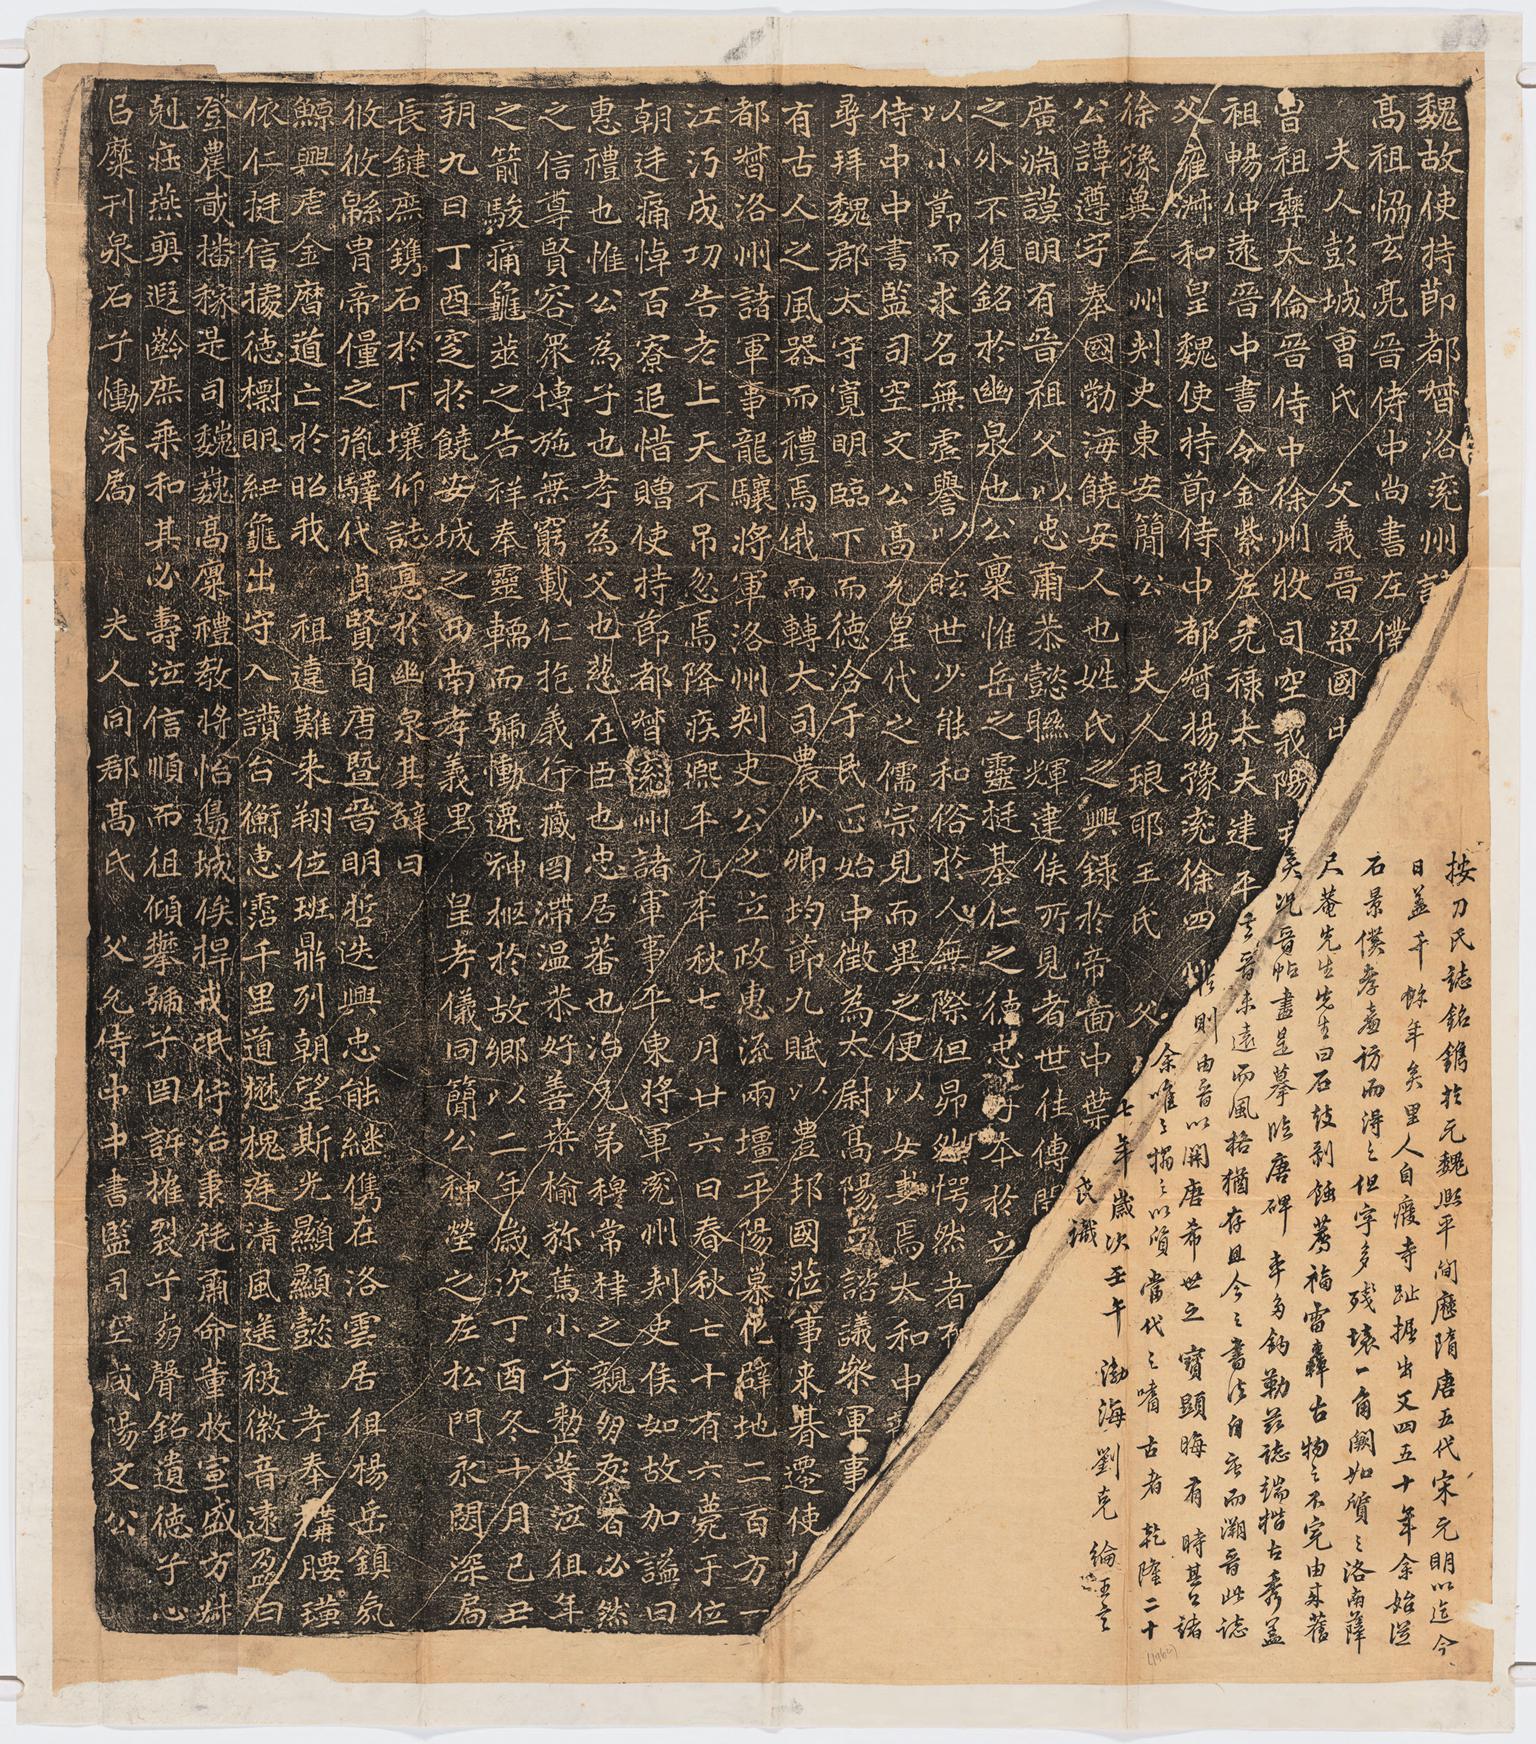 魏故使持節都督洛兗州諸
高祖協玄亮晉侍中尚書左僕
夫人彭城曹氏 父義晉梁國中
曾祖彝大倫晉侍中徐州牧司空義陽
祖暢仲遠晉中書令金紫左光祿大夫建平
父雍淑和皇魏使持節侍中都督揚豫兗徐四
徐豫冀三州刺史東安簡公 夫人琅耶王氏 父
公諱遵字奉國勃海饒安人也姓氏之興錄於帝面中葉
廣淵謨明有晉祖父以忠肅恭懿聯輝建侯所見者世佳傳聞
之外不復銘於幽泉也公稟惟岳之靈挺基仁之德忠孝本於立
以小節而求名無虛譽以眩世少能和俗於人無際但昂然愕然者
侍中中書監司空文公高允皇代之儒宗見而異之便以女妻焉太和中
尋拜魏郡太守寬明臨下而德洽于民正始中徵為太尉高陽王諮議參軍事
有古人之風器而禮焉俄而轉大司農少卿均節九賦以豐邦國莅事來朞遷使
都督洛州諸軍事龍驤將軍洛州刺史公之立政惠流兩壇平陽慕化辟地二百方一
江沔成功告老上天不吊忽焉降疾熙平元年秋七月廿六日春秋七十有六薨于位
朝廷痛悼百寮追惜贈使持節都督兗州諸軍事平東將軍兗州刺史侯如故加謚曰
惠禮也惟公為子也孝為父也慈在臣也忠居蕃也治兄弟穆常棣之親朋友著必然
之信尊賢容眾博施無窮載仁抱義行藏罔滯温恭好善桒榆弥篤小子整等泣徂年
之箭駿痛龜莁之告祥奉靈輀而號慟遷神柩於故鄉以二年歲次丁酉冬十月己丑
朔九日丁酉窆於饒安城之西南孝義里 皇考儀同簡公神塋之左松門永閟深扃
長鍵庶鐫石於下壤仰誌真於幽泉其辭曰
攸攸緜胄帝僮之胤驛代貞賢自唐暨晉明哲迭興忠能継儁在洛雲居徂楊岳鎮氛
鯨興虐金曆道亡於昭我 祖違難来翔位班鼎列朝望斯光顯顯懿 考奉講腰璜
依仁挺信據德櫩明紐龜出守入讚台衡惠霑千里道懋槐庭清風遂被徽音遠盈曰
登農敢播稼是司魏魏高稟禮教將怡邊城俟捍戎氓佇治秉旄肅命董牧宣威方對
剋疟燕與遐齡庶乘和其必壽泣信順而徂傾攀號子罔訴摧裂子崩聲銘遺德子心
呂糜刊泉石子慟深扃 夫人同郡高氏 父允侍中中書監司空咸陽文公
按刀氏誌銘鐫於元魏熙平間歷隋唐五代宋元明以迄今
日蓋千餘年矣里人自廢寺趾掘出又四五十年余始從
石景僕孝廉訪而得之但字多殘壞一角闕如質之洛南薛
尺菴先生先生曰石鼓剝蝕薦福雷轟古物之不完由來舊
矣況晉帖盡是摹臨唐碑率多鈎勒茲誌端楷古秀蓋
去晉未遠而風格猶存且今之書法自唐而溯晉此誌
則由晉以開唐希世之寶顯晦有時其公諸
余唯之搨之以質當代之嗜古者 乾隆二十
七年歲次壬午 渤海劉克綸王言
氏識